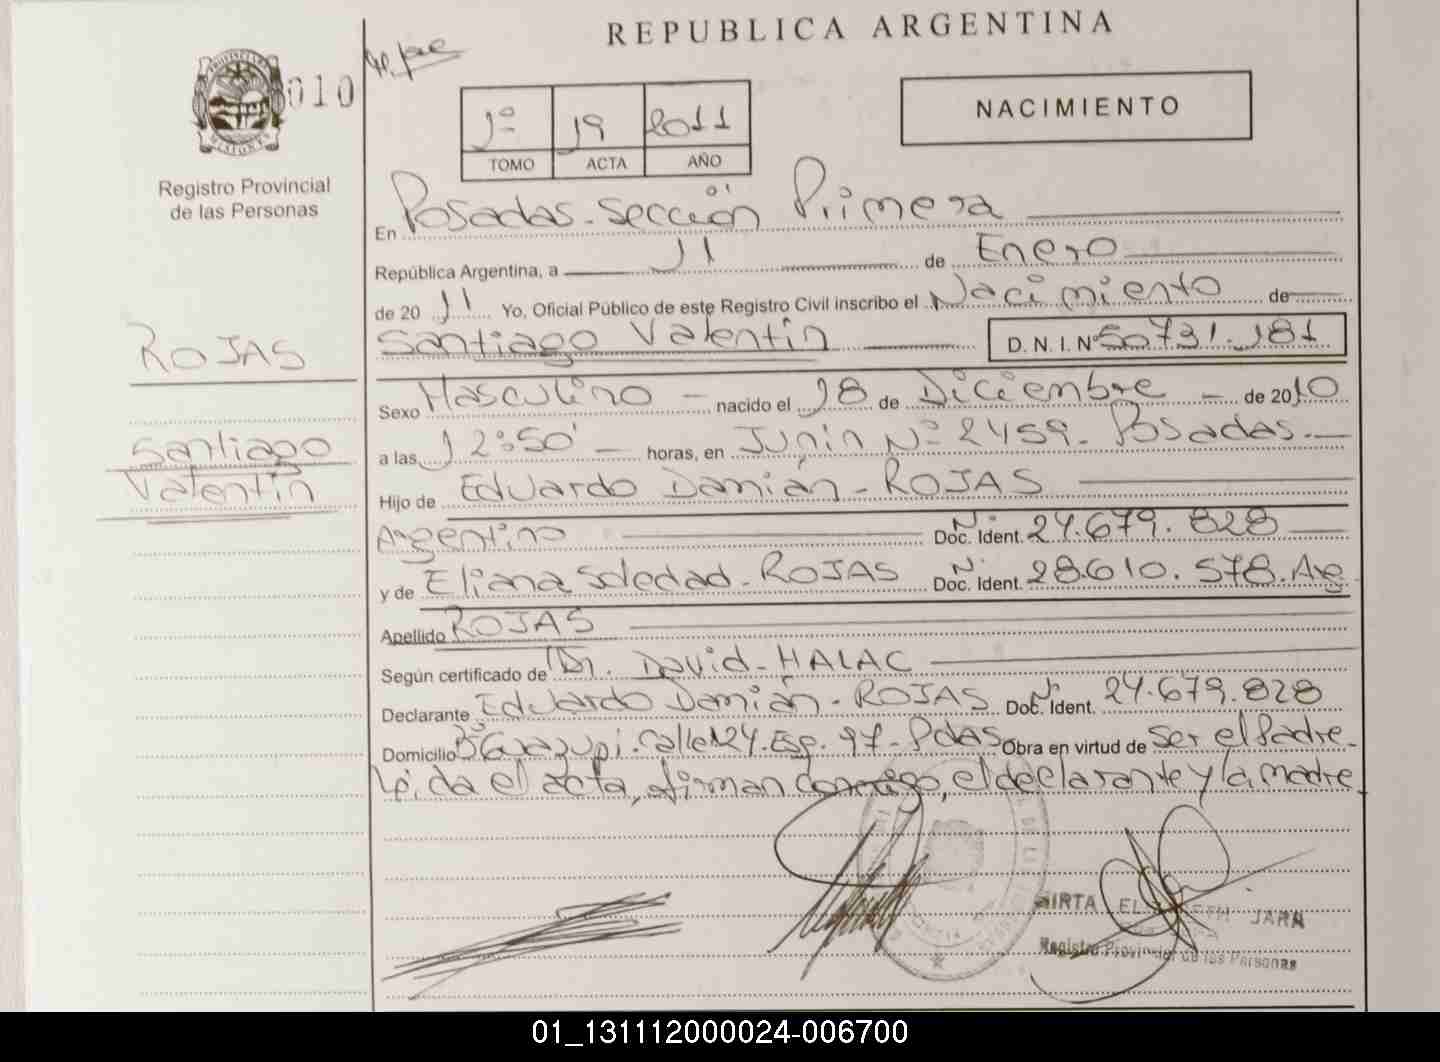 REPUBLICA ARGENTINA
PROVINCIA
MISIONES
010
Registro Provincial
de las Personas
1º 19 2011
TOMO ACTA AÑO
NACIMIENTO
En Posadas-Sección Primera
República Argentina, a 11 de Enero
de 2011 Yo, Oficial Público de este Registro Civil inscribo el Nacimiento de
Santiago Valentín D.N.I.Nº 50731.181
ROJAS
Santiago
Valentín
Sexo Masculino - nacido el 18 de Diciembre - de 2010
a las 12:50' - horas, en Junín Nº 2459. Posadas.
Hijo de Eduardo Damián - ROJAS
Argentino Doc. Nº Ident. 24.679.828
y de Eliana Soledad - ROJAS Doc. Nº Ident. 28.610.578. Arg
Apellido ROJAS
Según certificado de Dr. David - HALAC
Declarante Eduardo Damián - ROJAS Doc. Nº Ident. 24.679.828
Domicilio Bº Guazupi. Calle 124. Esq. 97 - Pdas Obra en virtud de Ser el Padre.
Leída el acta, firman conmigo, el declarante y la madre
MIRTA EL JARA
Registro Provincial de las Personas
01_131112000024-006700